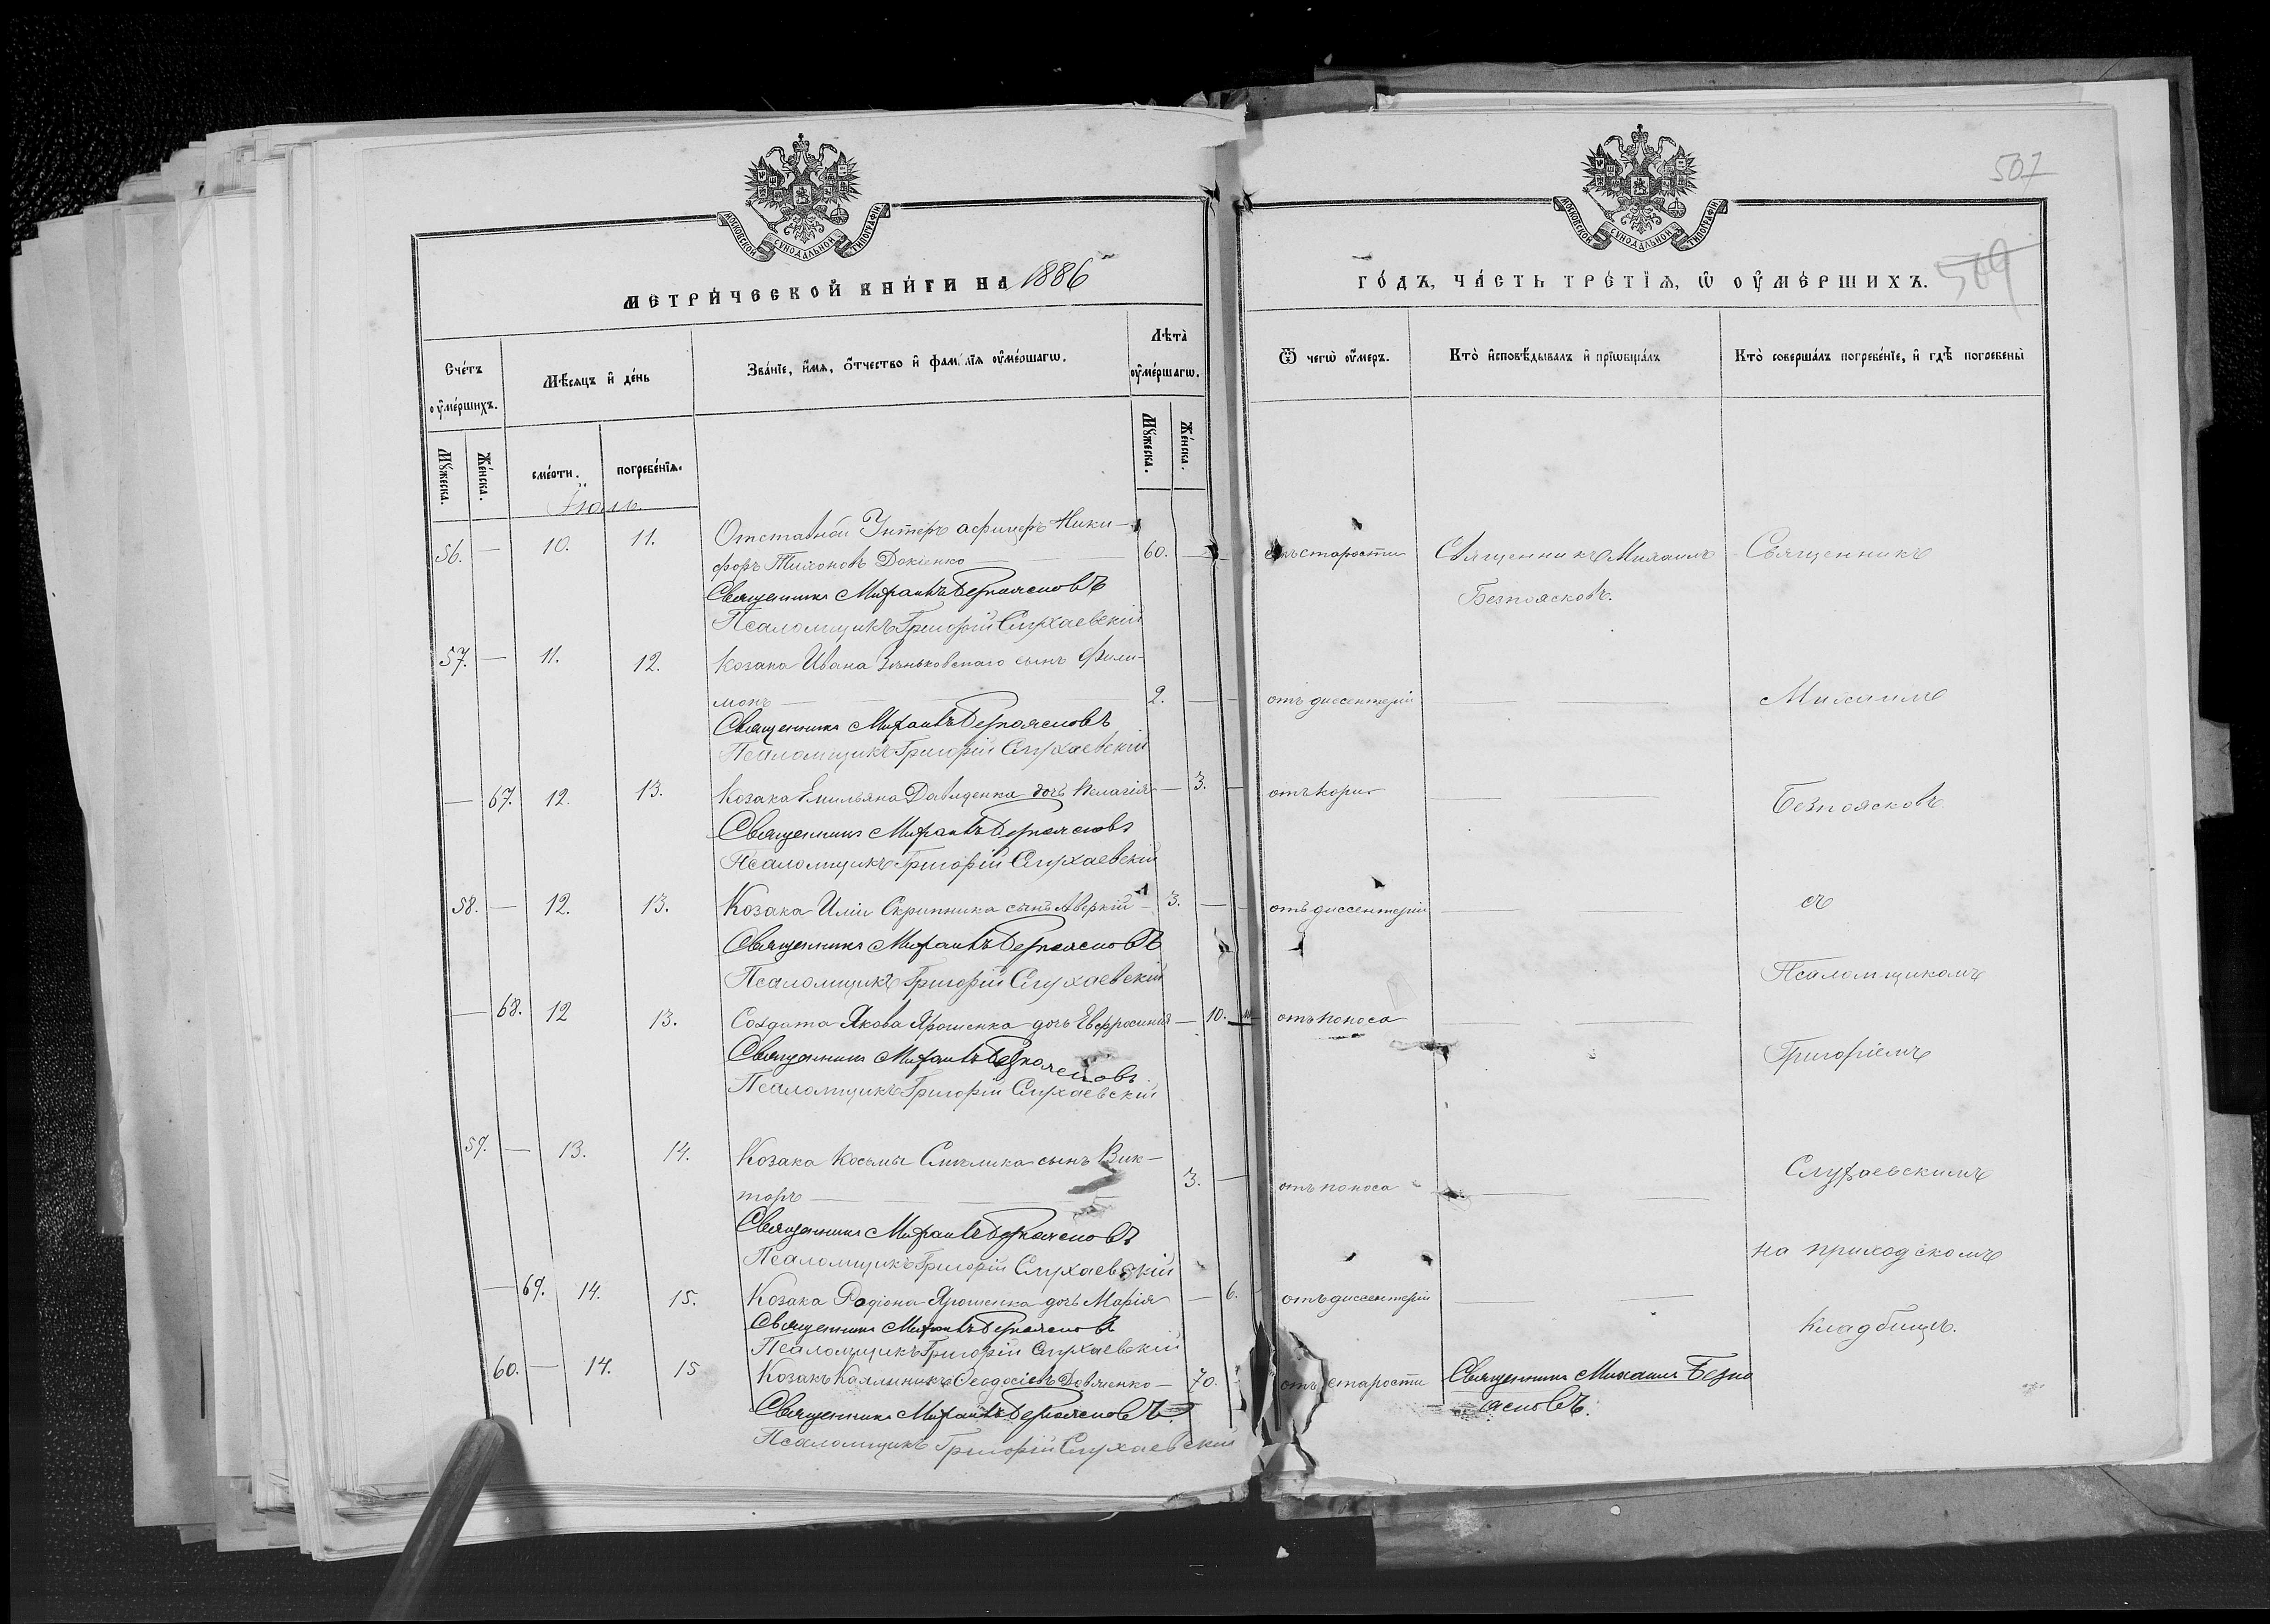 МОСКОВСКОЙ СѴНОДАЛЬНОЙ ТИПОГРАФІИ
МЕТРИЧЕСКОЙ КНИГИ НА 1886
Счетъ оумершихъ.
Мѣсяцъ и день
Званіе, имя, отчество и фамилія оумершагѡ.
Лѣта оумершагѡ.
Мꙋжеска.
Женска.
смерти.
погребенія.
Мꙋжеска.
Женска.
Іюль
56. — 10. 11. Отставной Унтеръ афицеръ Ники-
форъ Тихоновъ Докіенко — 60. —
Священникъ Михаилъ Безпоясковъ
Псаломщикъ Григорій Слухаевскій
57. — 11. 12. Козака Ивана Зеньковскаго сынъ Фили-
монъ — 2. —
Священникъ Михаилъ Безпоясковъ
Псаломщикъ Григорій Слухаевскій
— 67. 12. 13. Козака Емильяна Давиденка дочь Пелагія — 3.
Священникъ Михаилъ Безпоясковъ
Псаломщикъ Григорій Слухаевскій
58. — 12. 13. Козака Иліи Скрипника сынъ Аверкій — 3. —
Священникъ Михаилъ Безпоясковъ
Псаломщикъ Григорій Слухаевскій
— 68. 12 13. Солдата Якова Ярошенка дочь Евфросинія — 10.
Священникъ Михаилъ Безпоясковъ
Псаломщикъ Григорій Слухаевскій
59. — 13. 14. Козака Косьмы сынъ Вик-
торъ — 3. —
Священникъ Михаилъ Безпоясковъ
Псаломщикъ Григорій Слухаевскій
— 69. 14. 15. Козака Родіона Ярошенка дочь Марія — 6.
Священникъ Михаилъ Безпоясковъ
Псаломщикъ Григорій Слухаевскій
60. — 14. 15 Козакъ Каллиникъ Ѳеодосіевъ — 70.
Священникъ Михаилъ Безпоясковъ
Псаломщикъ Григорій Слухаевскій
507
МОСКОВСКОЙ СѴНОДАЛЬНОЙ ТИПОГРАФІИ
ГОДЪ, ЧАСТЬ ТРЕТІЯ, Ѡ ОУМЕРШИХЪ.
509
Ѿ чегѡ оумеръ.
Кто исповѣдывалъ и пріѡбщалъ
Кто совершалъ погребеніе, и гдѣ погребены
отъ старости Священникъ Михаилъ Священникъ
Безпоясковъ.
отъ диссентеріи — — Михаилъ
отъ кори — — Безпоясковъ
отъ диссентеріи — — съ
Псаломщикомъ
отъ поноса — —
Григоріемъ
Слухаевскимъ
отъ поноса — —
на приходскомъ
отъ диссентеріи — —
Кладбищѣ.
отъ старости Священникъ Михаилъ Безпо
ясковъ.